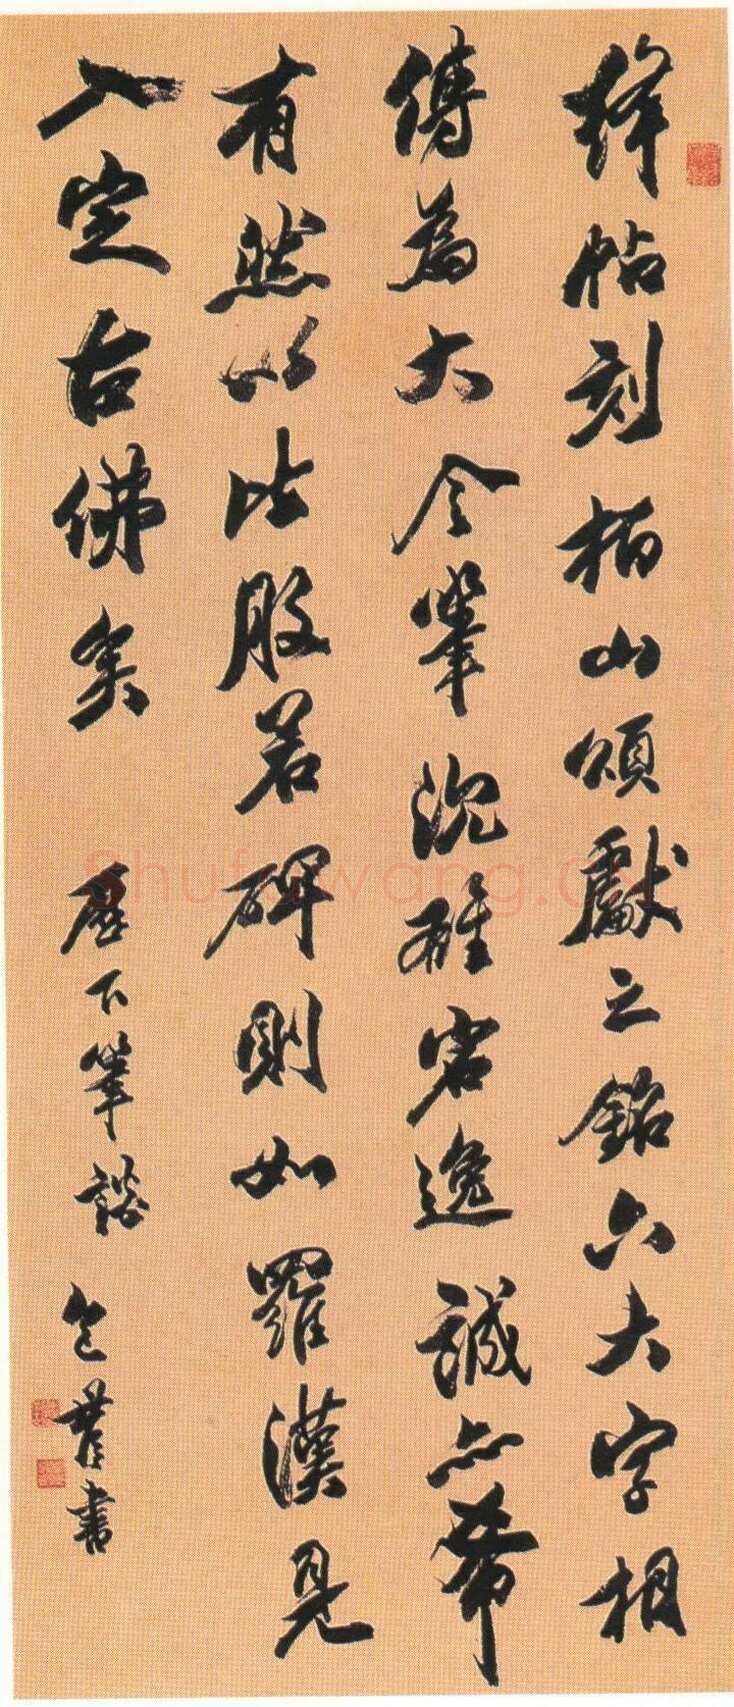 绛帖刻桐山頌獻之銘六大字相
傳為大令筆沉雄宕逸誠亦希
有然以比般若碑則如羅漢見
入定古佛矣 歷下筆談 包世臣書
Shufawang.cn